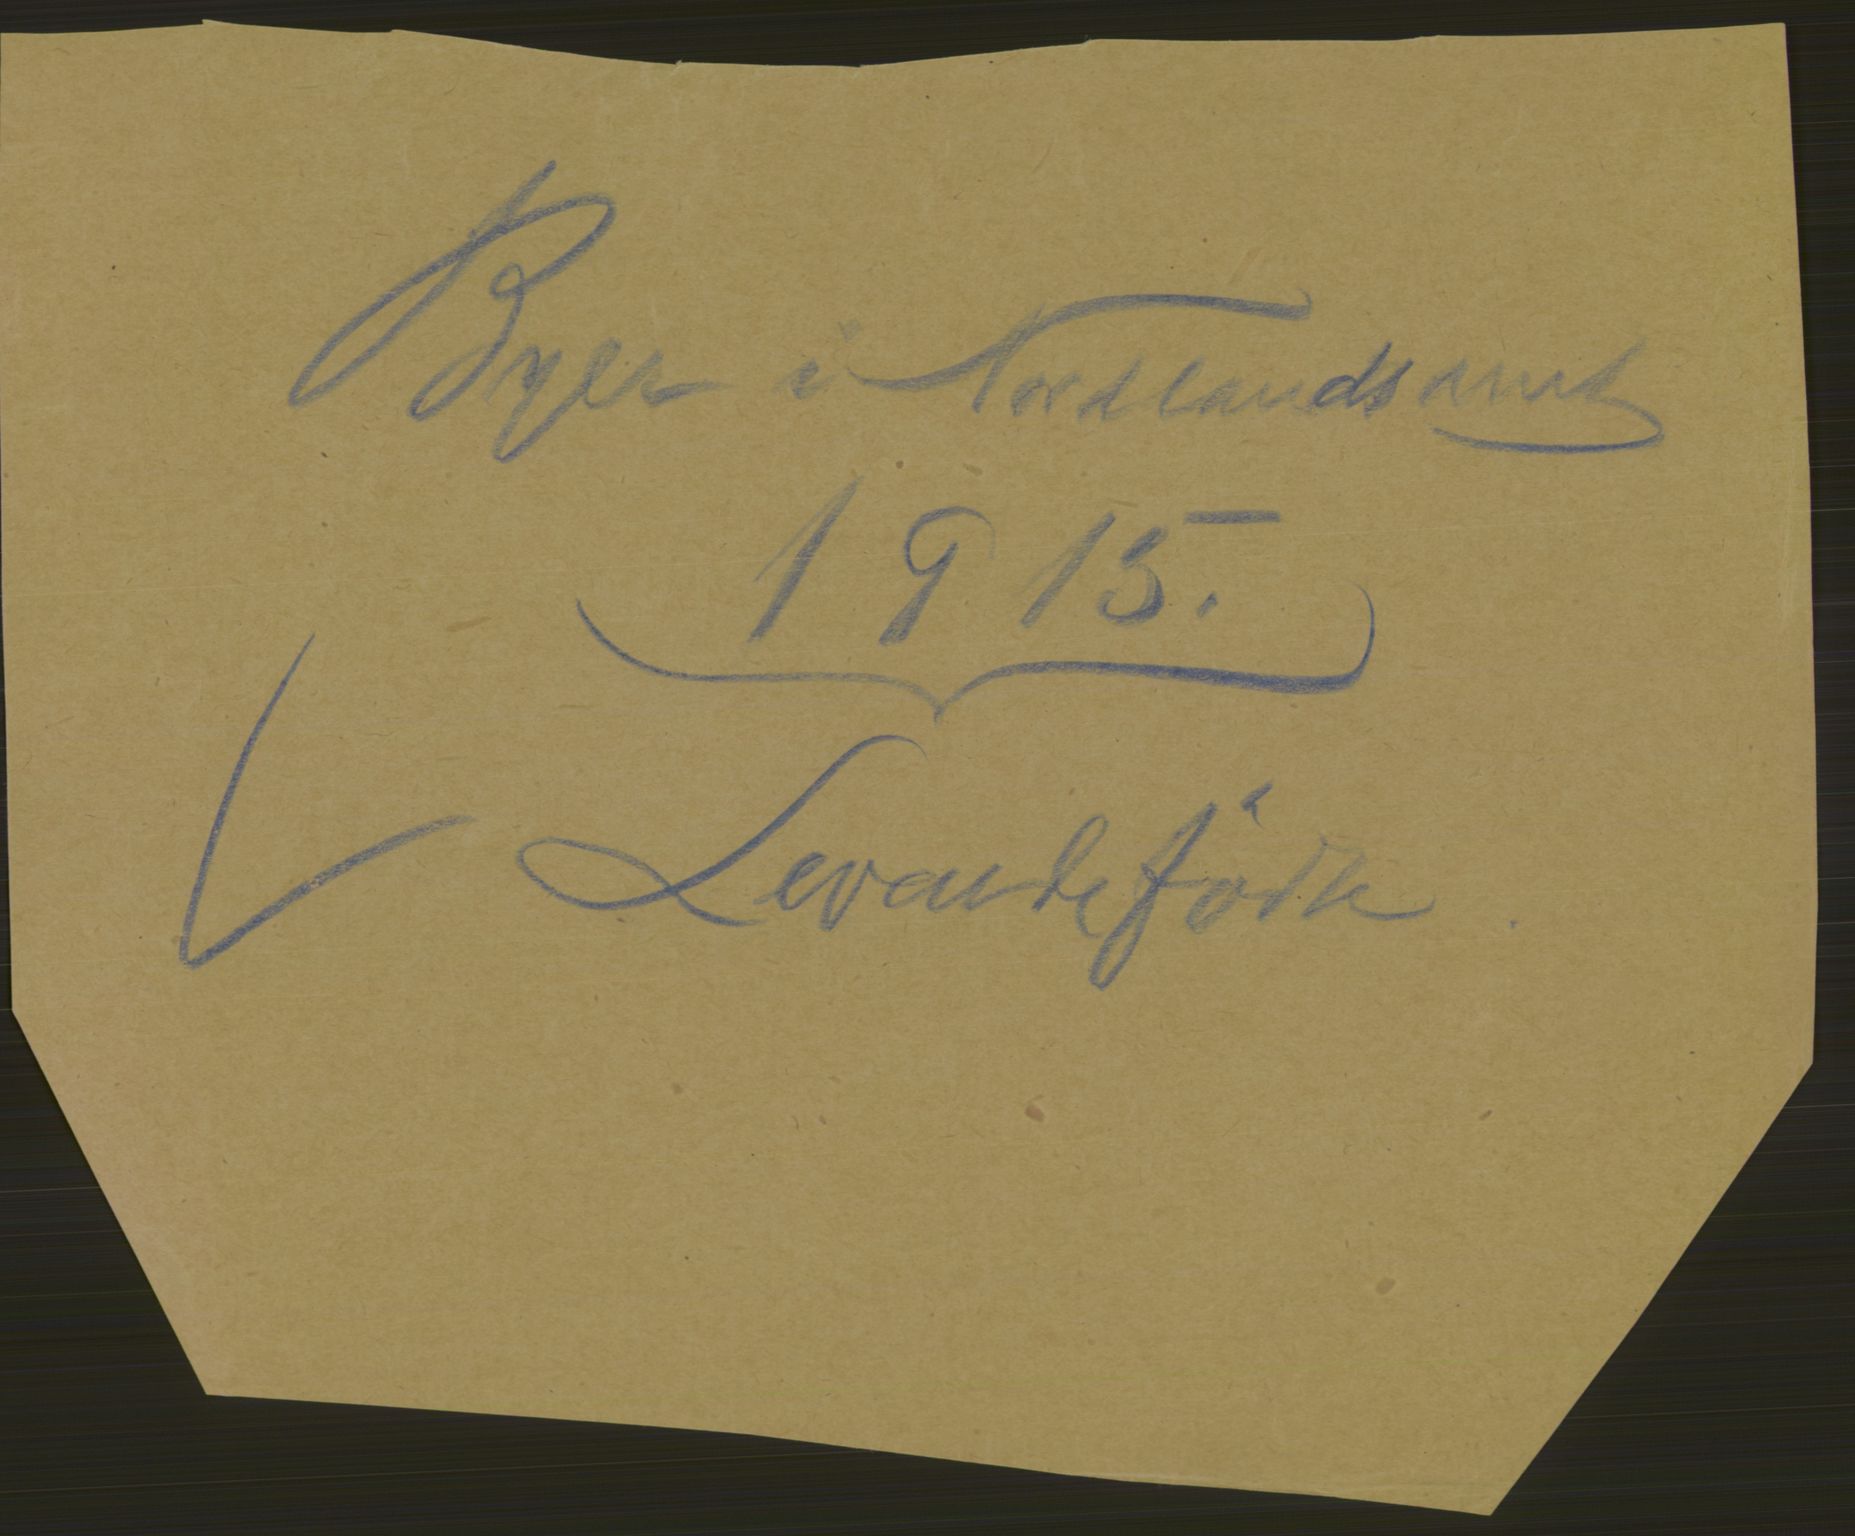 Byer i Nordlands amt
1915.
Levandefödte